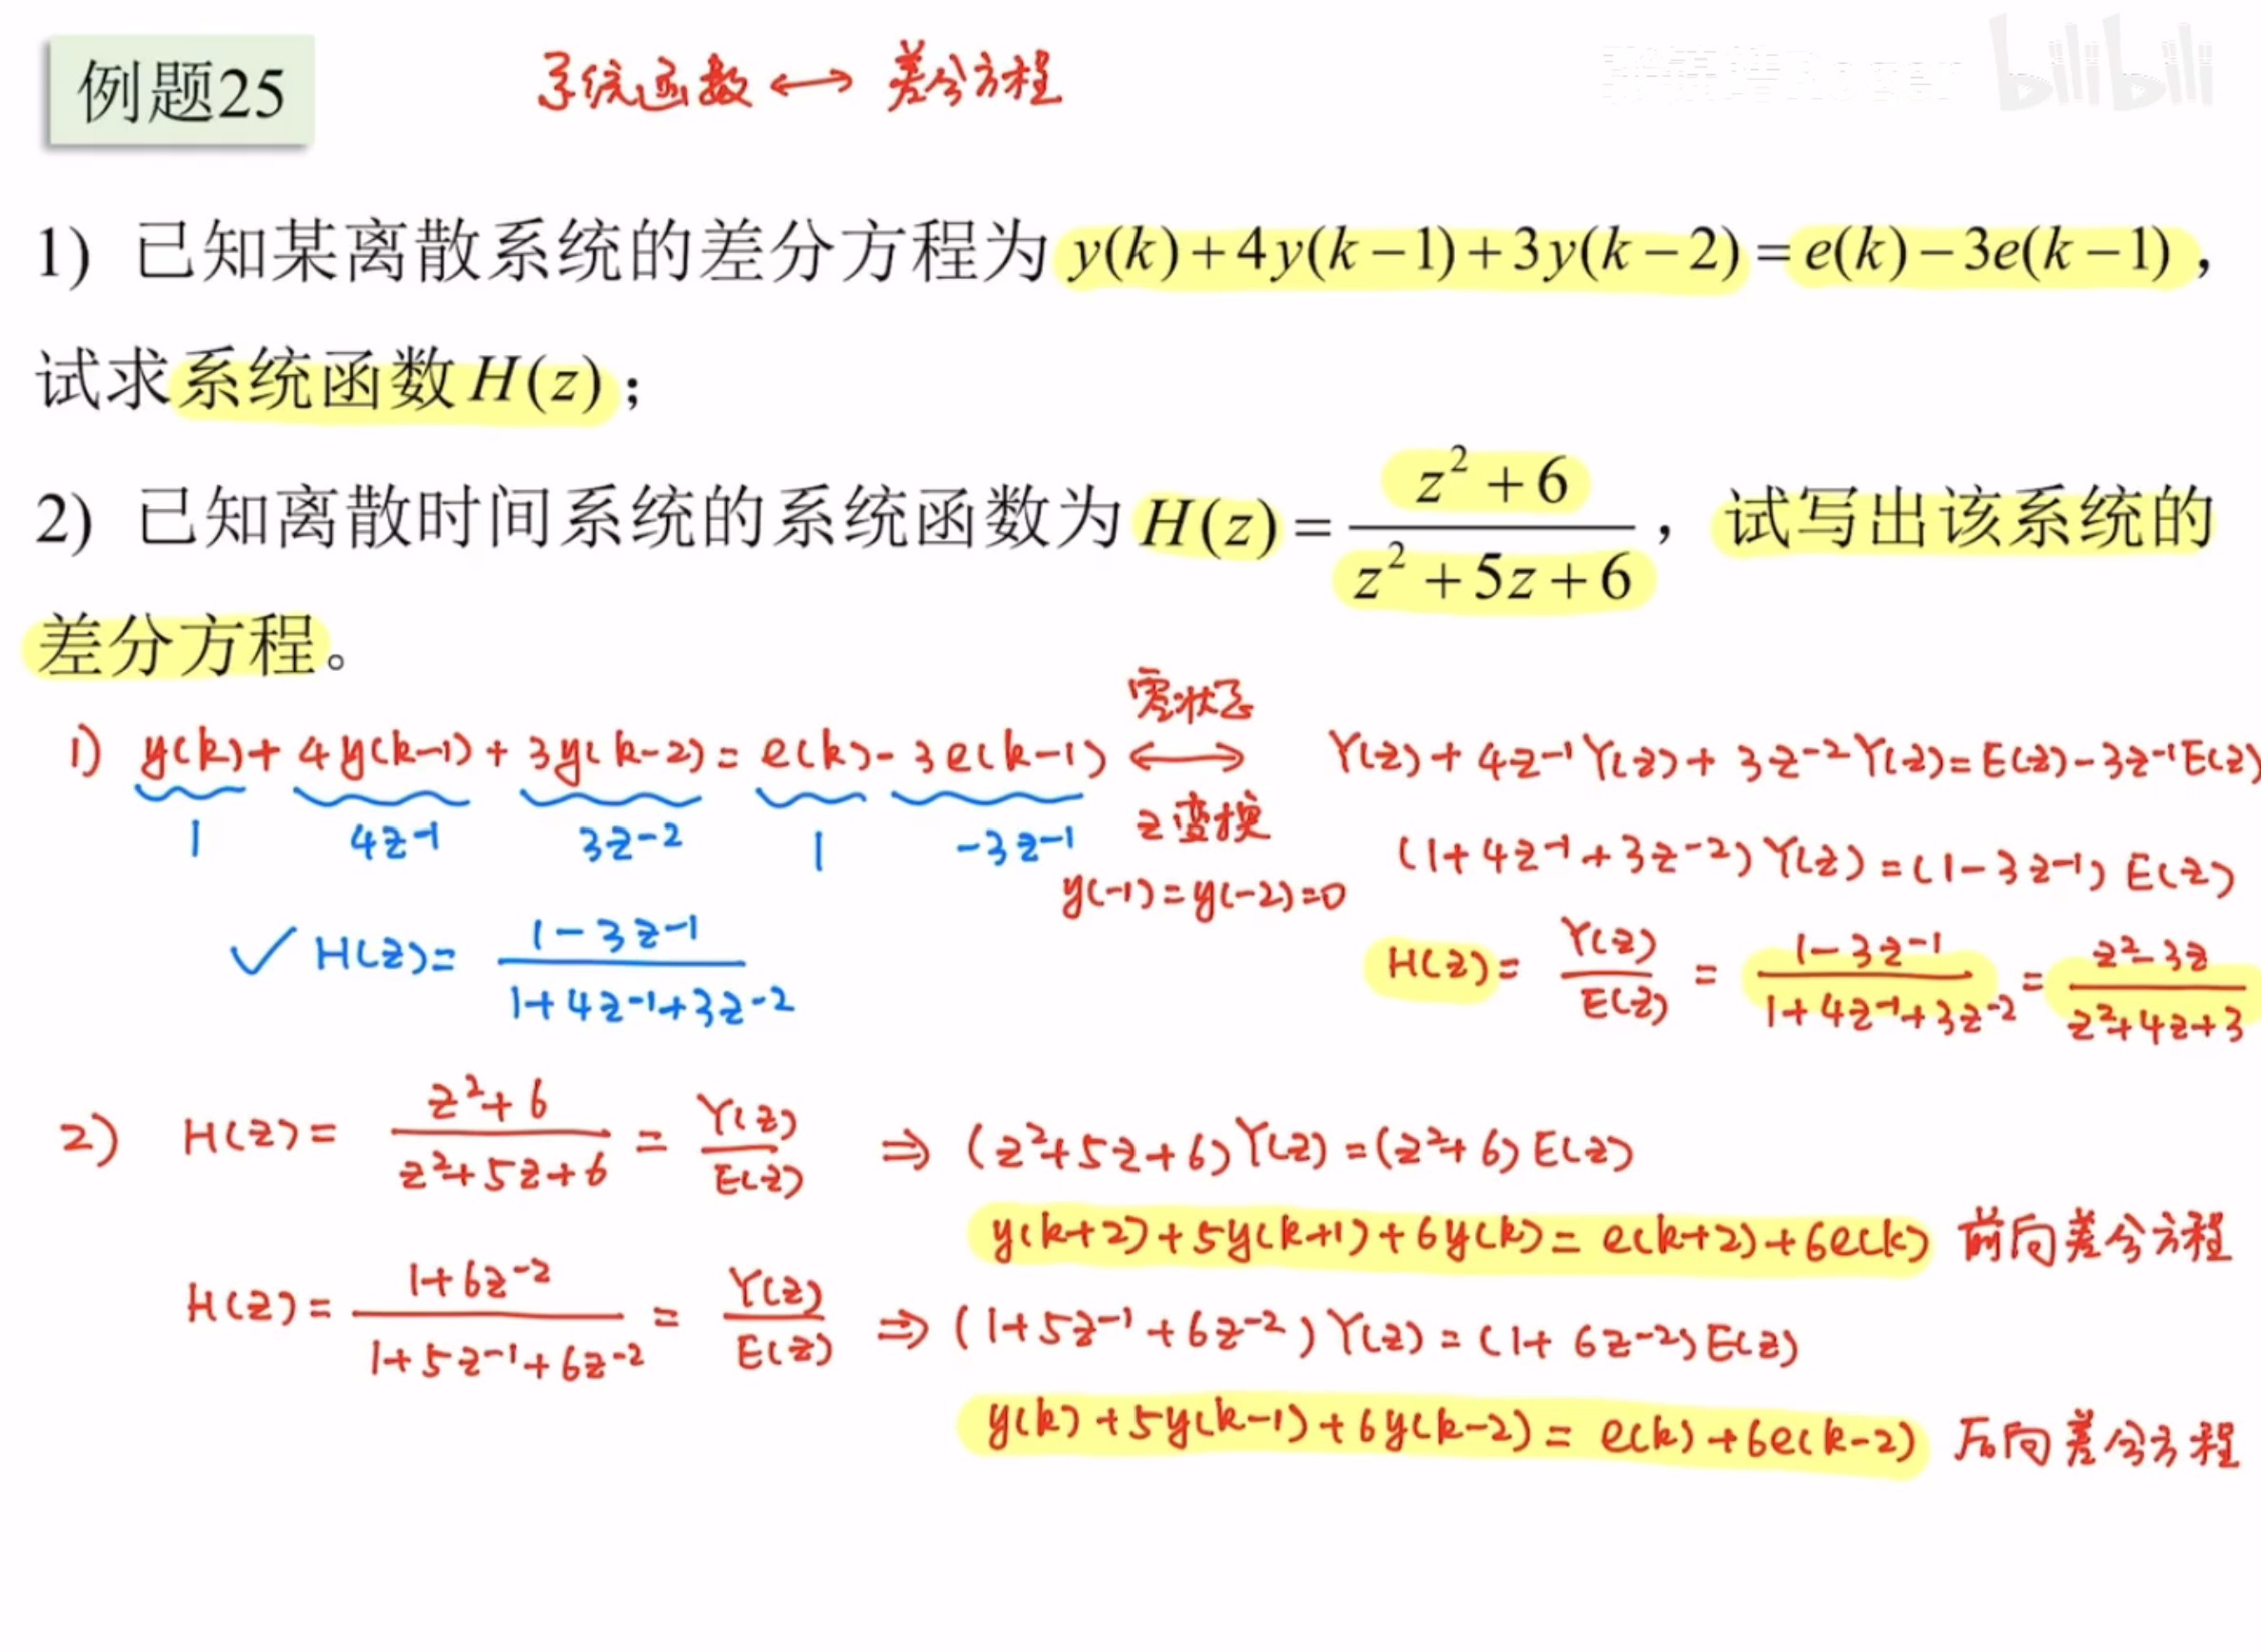 例题25
系统函数 ↔ 差分方程
bilibili
1) 已知某离散系统的差分方程为 y(k)+4y(k−1)+3y(k−2)=e(k)−3e(k−1)，
试求系统函数H(z)；
2) 已知离散时间系统的系统函数为 H(z)= (z²+6)/(z²+5z+6)，试写出该系统的
差分方程。
1) y(k)+4y(k-1)+3y(k-2)=e(k)-3e(k-1) ↔ Y(z)+4z⁻¹Y(z)+3z⁻²Y(z)=E(z)-3z⁻¹E(z)
零状态
z变换
y(-1)=y(-2)=0
1 4z⁻¹ 3z⁻² 1 -3z⁻¹
(1+4z⁻¹+3z⁻²)Y(z)=(1-3z⁻¹)E(z)
✓ H(z)= (1-3z⁻¹)/(1+4z⁻¹+3z⁻²)
H(z)= Y(z)/E(z) = (1-3z⁻¹)/(1+4z⁻¹+3z⁻²) = (z²-3z)/(z²+4z+3)
2) H(z)= (z²+6)/(z²+5z+6) = Y(z)/E(z) ⇒ (z²+5z+6)Y(z)=(z²+6)E(z)
y(k+2)+5y(k+1)+6y(k)=e(k+2)+6e(k) 前向差分方程
H(z)= (1+6z⁻²)/(1+5z⁻¹+6z⁻²) = Y(z)/E(z) ⇒ (1+5z⁻¹+6z⁻²)Y(z)=(1+6z⁻²)E(z)
y(k)+5y(k-1)+6y(k-2)=e(k)+6e(k-2) 后向差分方程